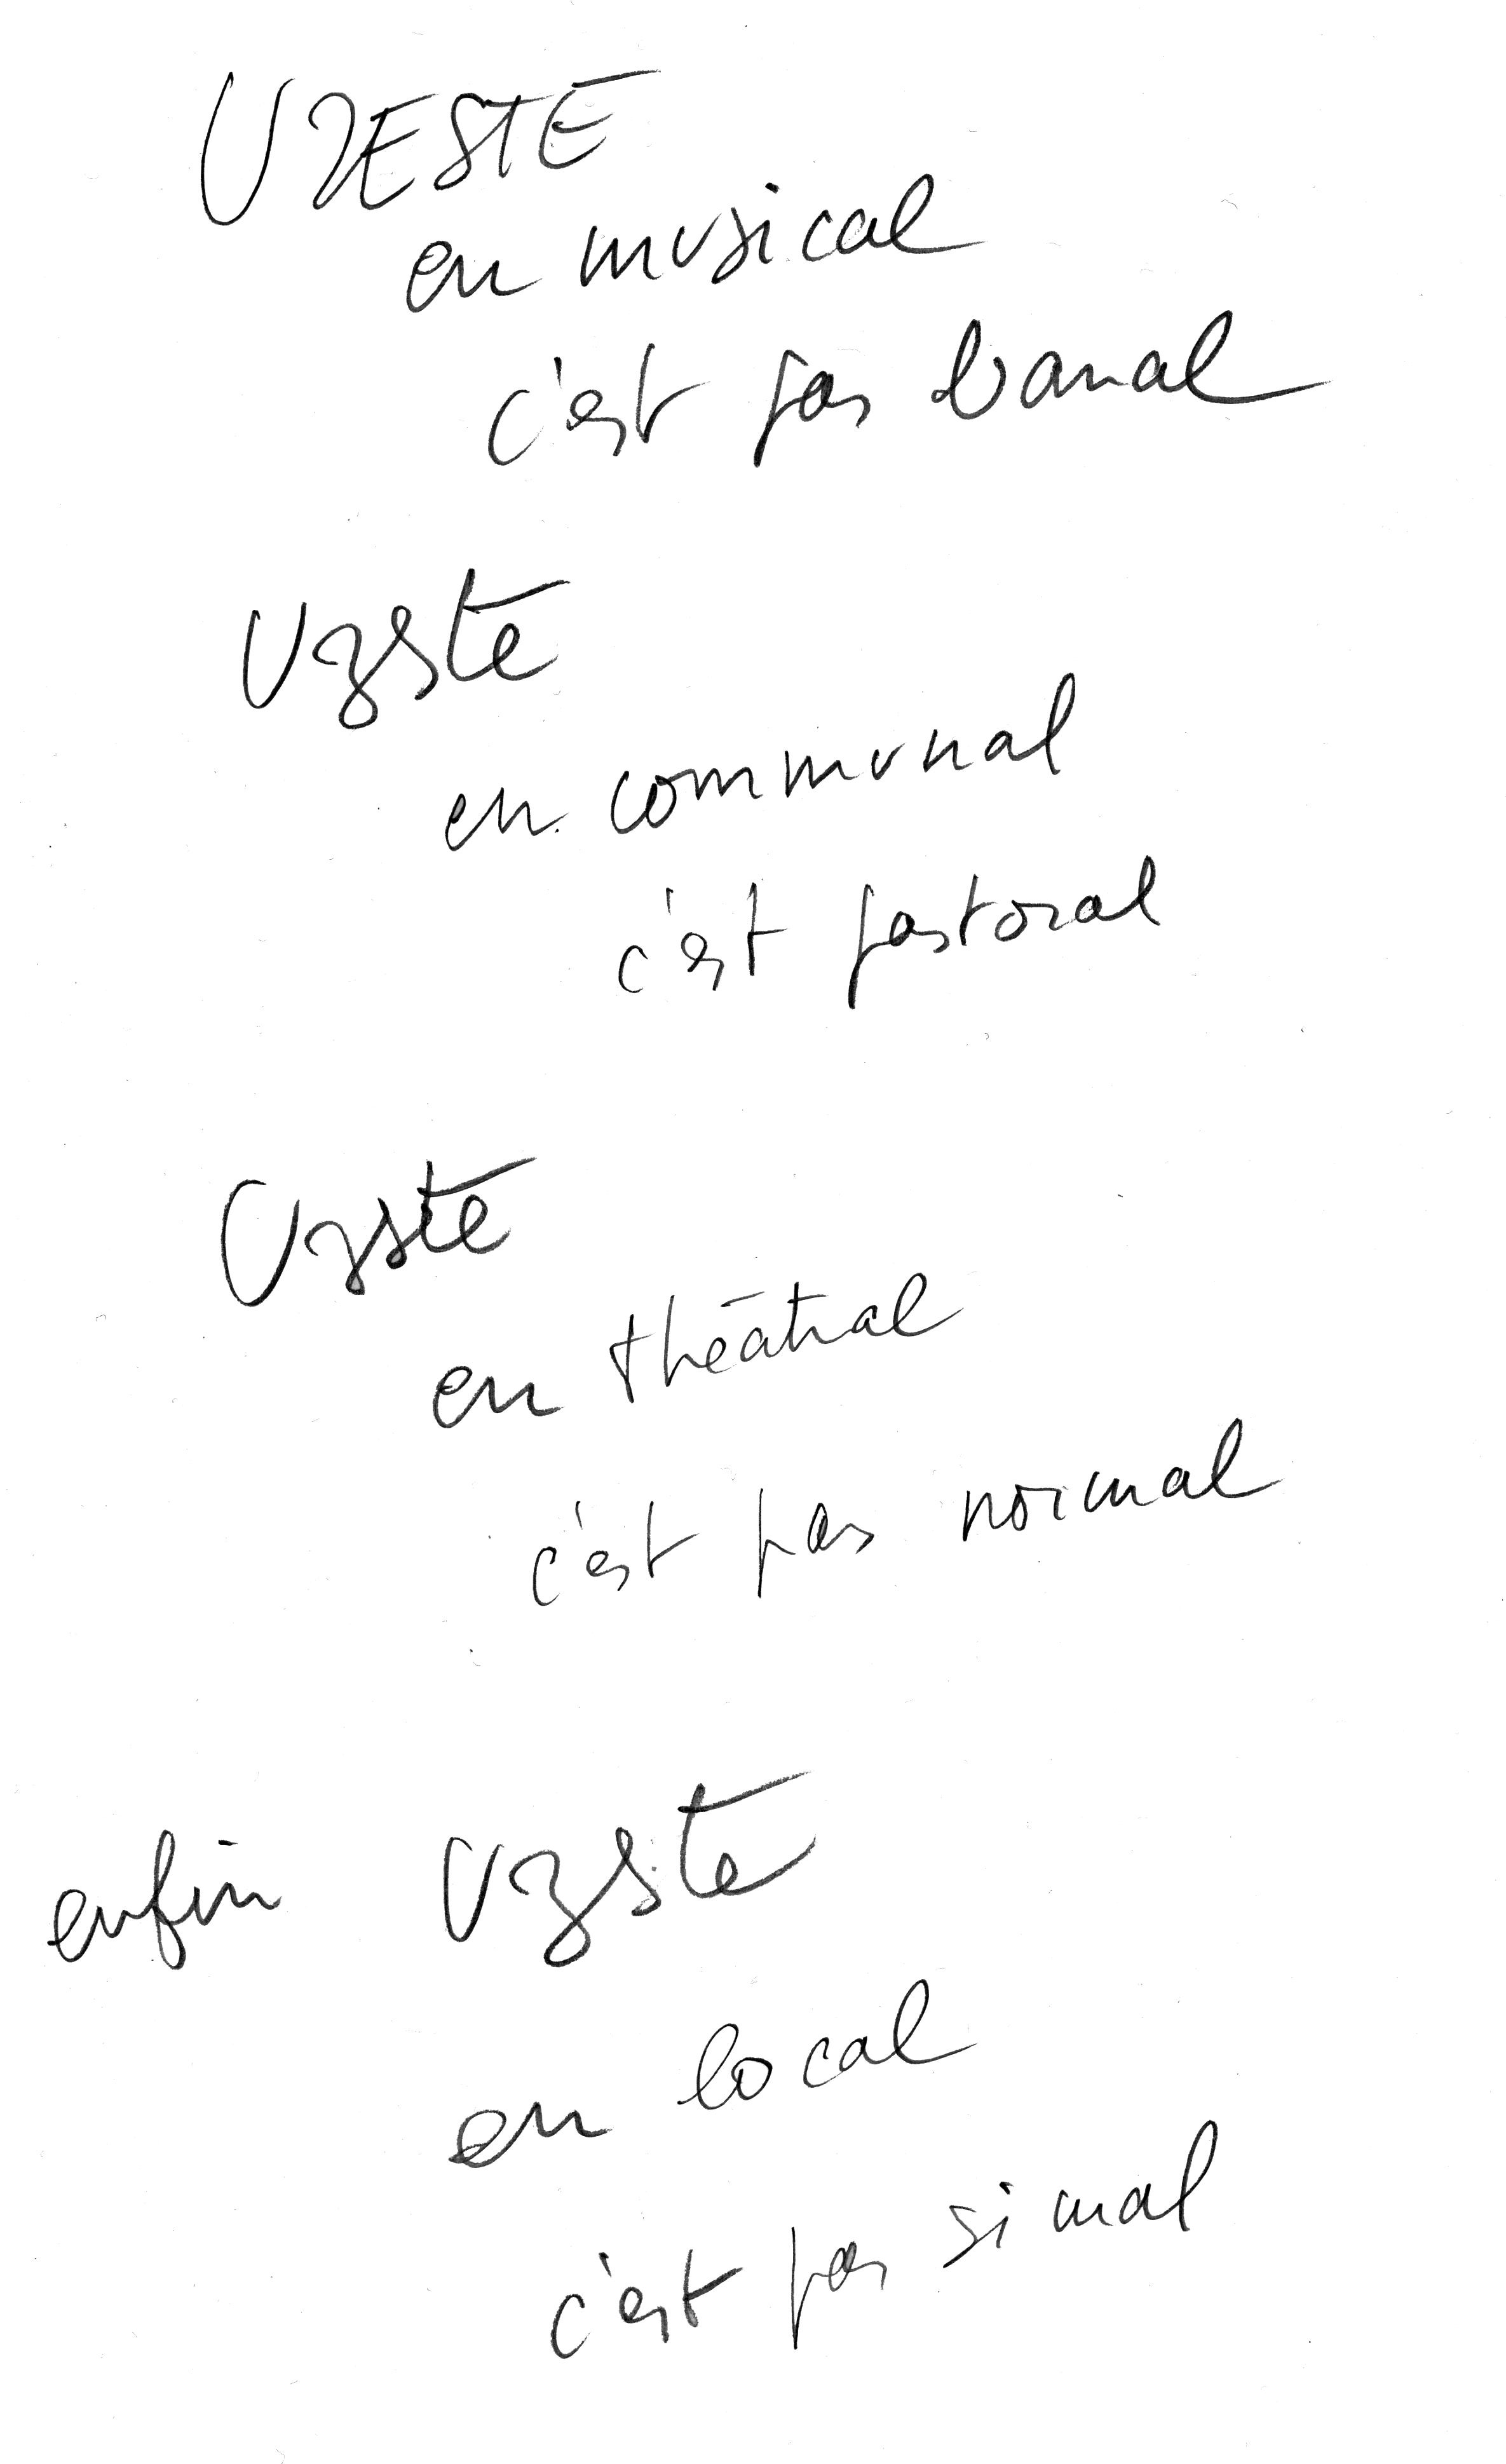 UZESTE
en musical
c'est pas banal
Uzeste
en communal
c'est pastoral
Uzeste
en théâtral
c'est pas normal
enfin Uzeste
en local
c'est pas si mal